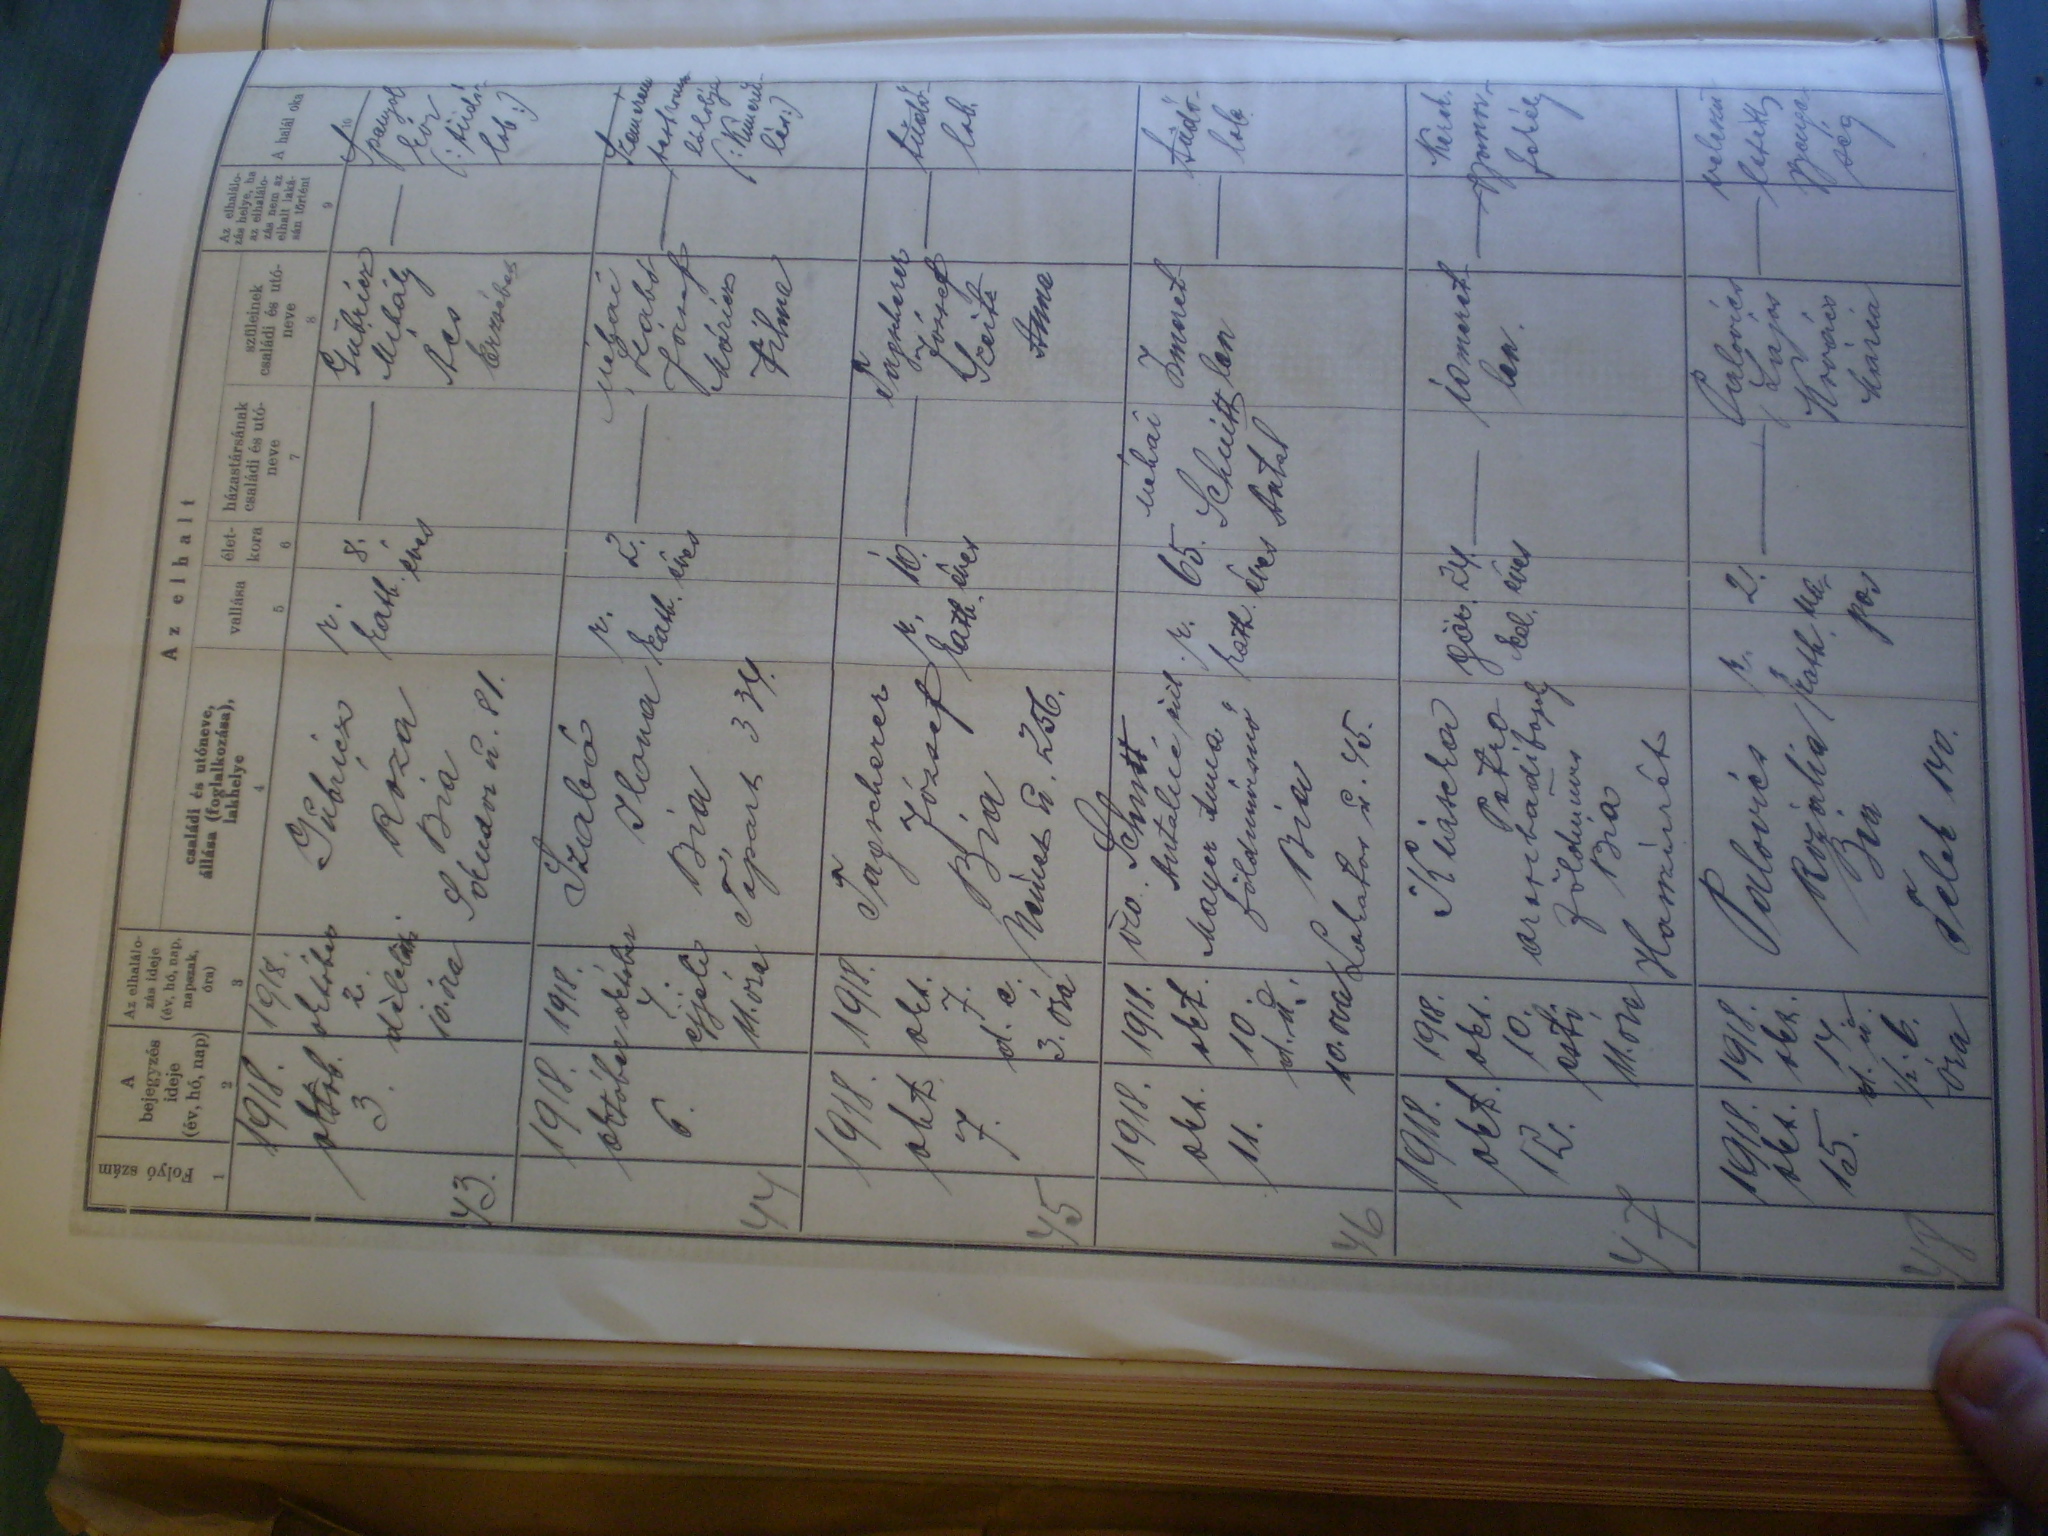 Az elhalt
Folyó szám
A bejegyzés ideje (év, hó, nap)
Az elhalálo-
zás ideje
(év, hó, nap,
napszak,
óra)
családi és utóneve,
állása (foglalkozása),
lakhelye
vallása
élet-
kora
házastársának
családi és utó-
neve
szüleinek
családi és utó-
neve
Az elhalálo-
zás helye, ha
az elhalálo-
zás nem az
elhalt laká-
sán történt
A halál oka
1
2
3
4
5
6
7
8
9
10
43.
1918.
októb.
3.
1918.
október
2.
délelőtt
10. óra
Gübricz
Róza
Bia
81.
r.
kath.
8.
éves
Gübricz
Mihály
Ács
Erzsébet
Spanyol
kór
(: tüdő-
lob :)
44
1918
október
6.
1918.
október
4
éjjeli
11. óra
Szabó
Ilona
Bia
334.
r.
kath.
2.
éves
néhai
Szabó
József
Móricz
Vilma
45
1918.
okt.
7.
1918.
okt.
7.
d. e.
3. óra
Tagscherer
József
Bia
Német u. 256.
r.
kath.
10.
éves
Tagscherer
József
Anna
tüdő-
lob.
46
1918.
okt.
11.
1918.
okt.
10.
10. óra
özv. Schmitt
Antalné szül.
Mayer Anna,
földmívesnő
Bia
u. 45.
r.
kath.
65.
éves
néhai
Schmitt
Antal
Ismeret
len
tüdő-
lob.
47
1918.
okt.
12.
1918.
okt.
10.
esti
11. óra
Petro
földmíves
Bia
gör.
kel.
24.
éves
ismeret
len.
gyomor-
fekély
48
1918.
okt.
15.
1918.
okt.
14.
d. u.
6.
óra
Pavlovics
Rozália
Bia
Telek 140.
r.
kath.
2.
na-
pos
Pavlovics
Lajos
Kovács
Mária
veleszü
letett
gyenge
ség